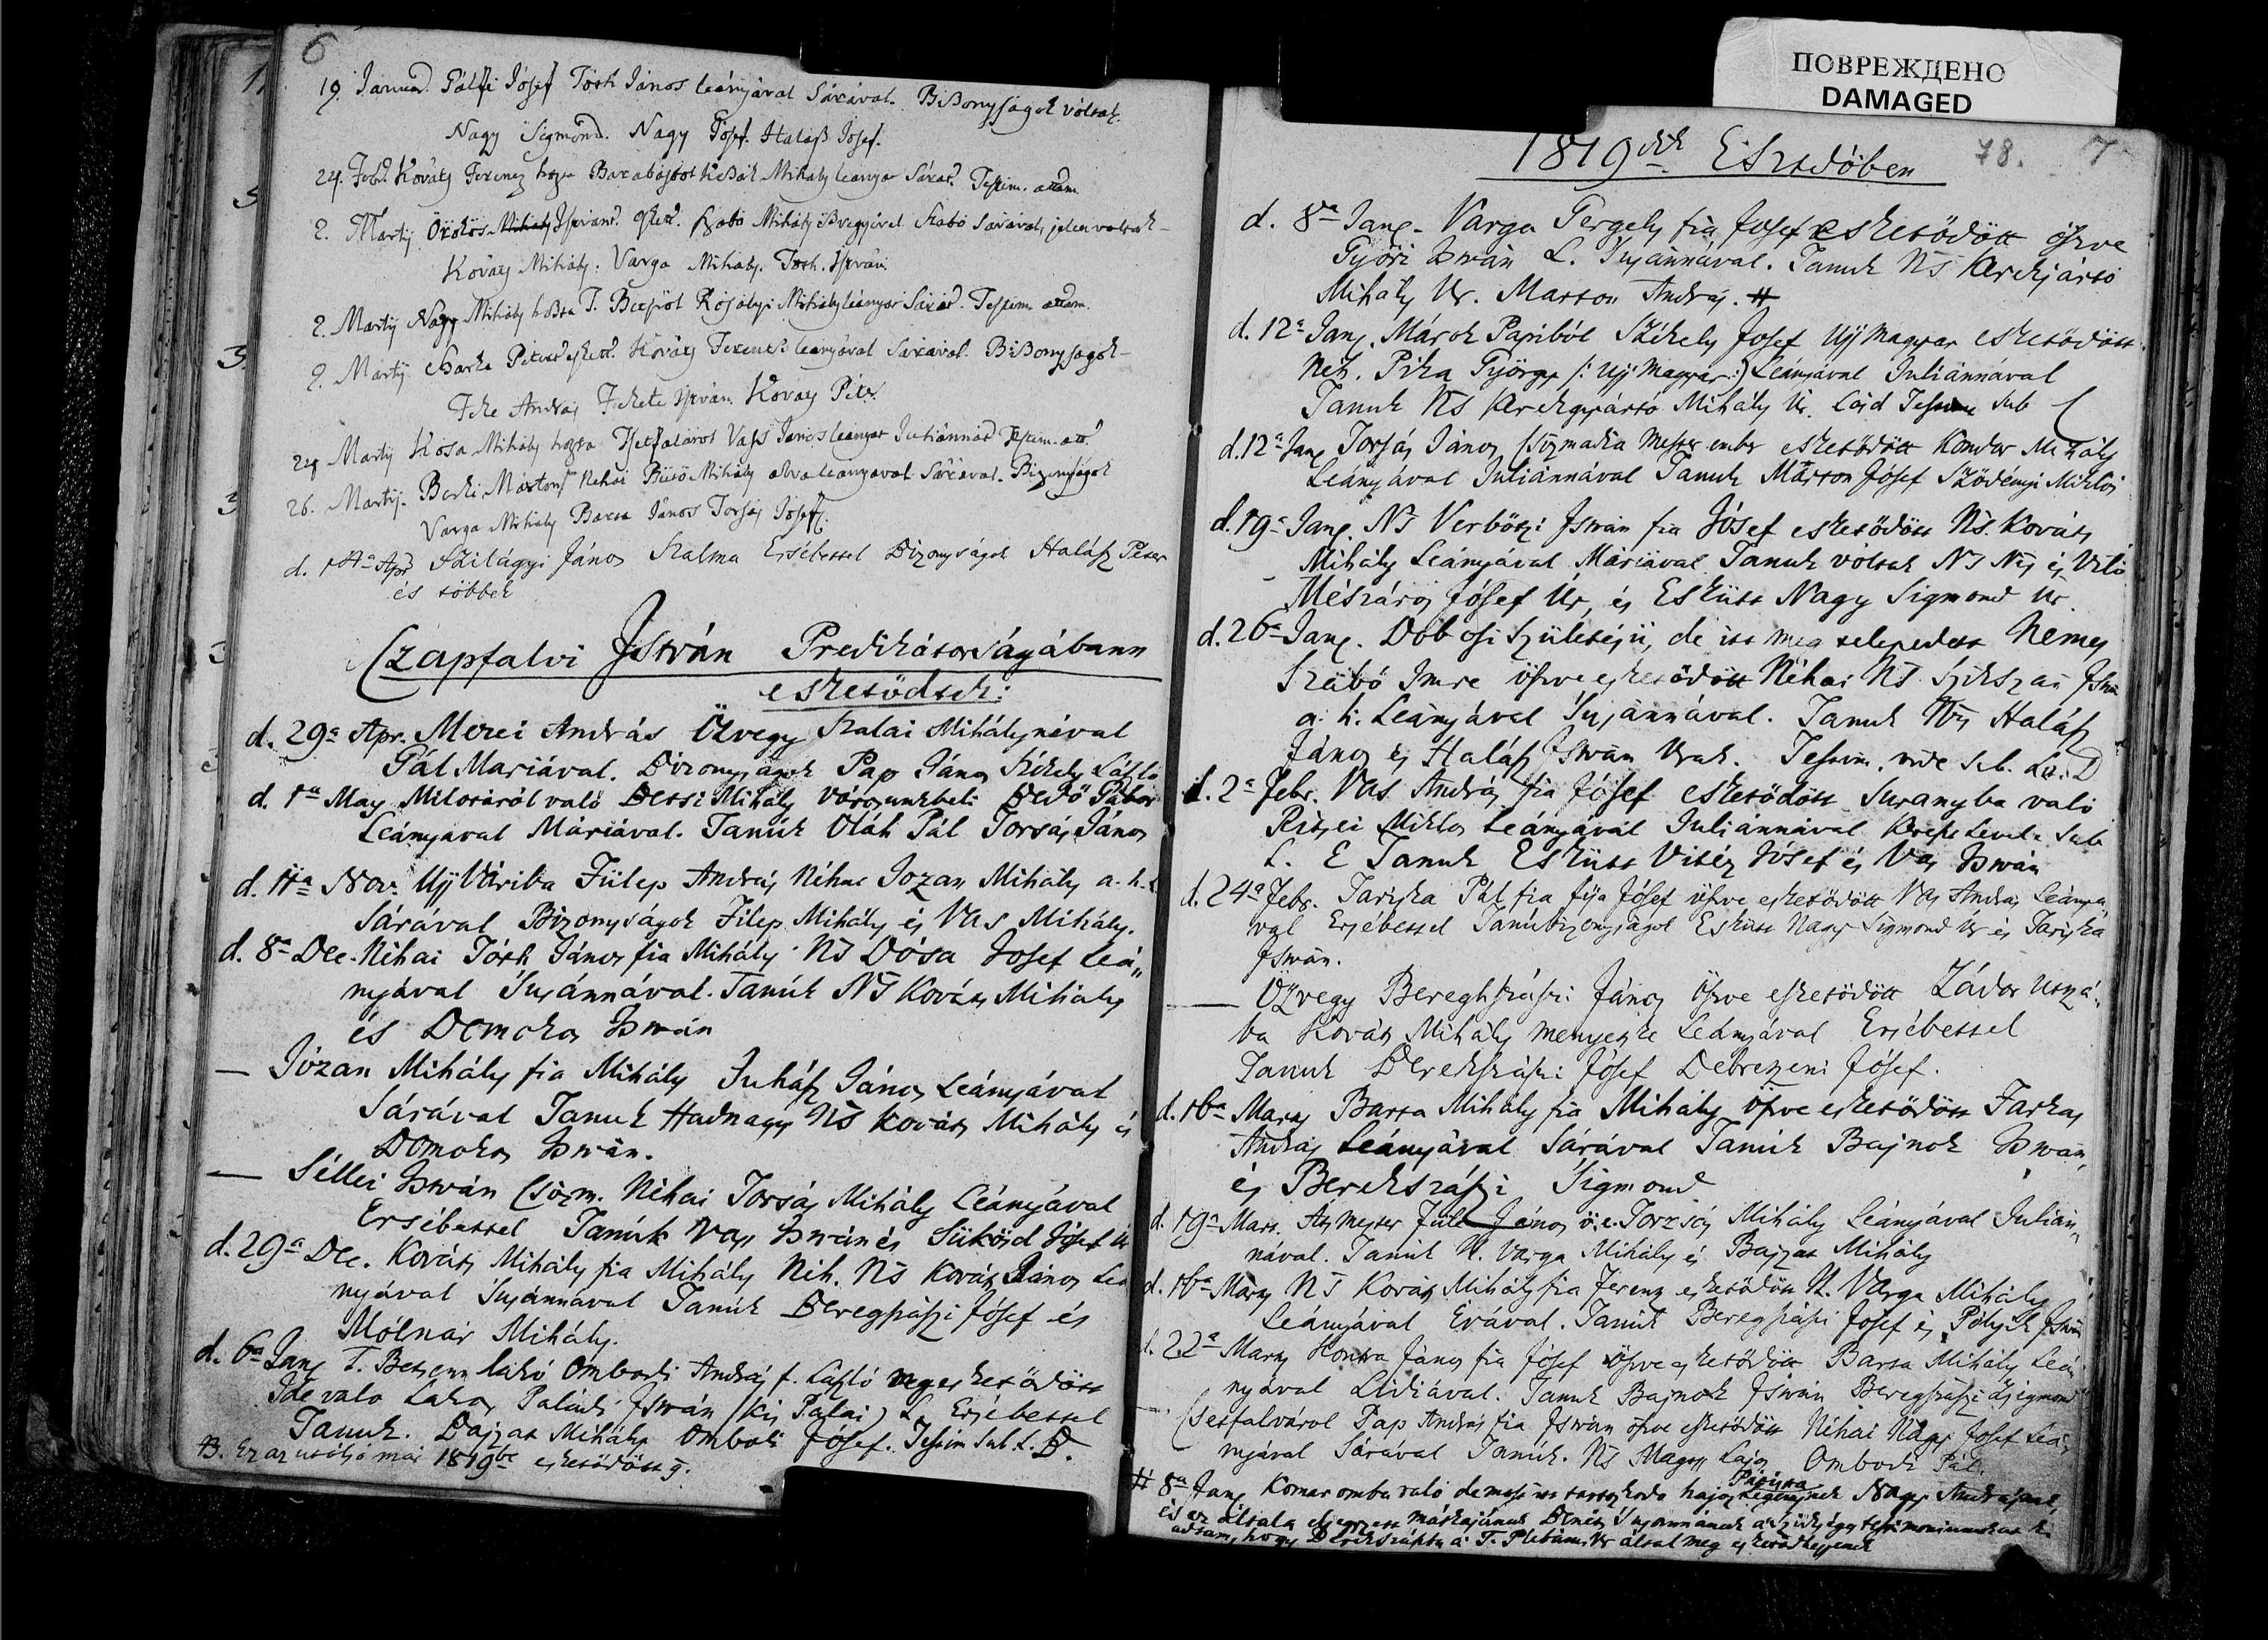 6
19. Januar. Pálfi Jósef Tóth János leányával Sárával. Bißonyságok vóltak.
Nagy Sigmond. Nagy Jósef. Halaß Josef.
24. Febr. Kováts Ferencz hozta Mihály leányát Sárát. Testim. attam
2. Martij Örökös Istvánt. Szabó Mihály ößvegyével Szabó Sárával, jelen voltak
Kováts Mihály. Varga Mihály. Tóth István.
2. Martij Nagy Mihály hozta T. Mihály leányát Sárát. Testim. attam.
2. Martij Péter Kováts Ferentz leányával Sárával. Bißonyságok
Fekete István. Kováts Péter.
24 Martij Kósa Mihály hozta Vass János leányát Juliánnát Testim. att.
26. Martij. Márton Néhai Mihály leányával Sárával. Bizonyságok
Varga Mihály Barta János Torsás Josef.
d. 14a Apr Szilágyi János Szalma Ersébettel Bizonyságok Halász Péter
és többek
Czapfalvi István Predikátorságábann
eskettödtek:
d. 29a Apr. Mezei András Özvegy Szalai Mihálynéval
Gál Mariával. Bizonyságok Pap János Székely László
d. 1a May való Mihály Gábor
Leányával Máriával. Tanúk Oláh Pál Torsás János
d. 11a Nov. Fülep András Néhai Jozan Mihály a. h. L
Sárával Bizonyságok Filep Mihály és Vas Mihály.
d. 8a Dec. Néhai Tóth János fia Mihály Ns Dósa Josef Leá„
nyával Susánnával. Tanúk Ns Kováts Mihály
és Domokos István
— Józan Mihály fia Mihály Juhász János Leányával
Sárával Tanuk Hadnagy Ns Kováts Mihály és
Domokos István.
— Séllei István Csizm. Néhai Torsás Mihály Leányával
Ersébettel Tanúk Vass István és Sükösd Jósef Úr
d. 29a Dec. Kováts Mihály fia Mihály Néh. Ns Kováts János Leá
nyával Susánnával Tanúk Beregszászi Jósef és
Mólnár Mihály.
d. 6a Jan. lakó Ombodi András f. László megesketödött
Ide való Lakos Paládi István (Kis Palai) L. Ersébettel
Tanuk. Bajzát Mihály Ombodi Jósef. Testim sub L. B.
B. Ez az utólsó már 1819be esketödött.
ПОВРЕЖДЕНО
DAMAGED
78. 7
1819dik Esztdöben
d. 8a Jan. Varga Gergely fia Josef esketödött öszve
Györi István L. Susánnával. Tanuk Ns Kerekjártó
Mihály Ur. Marton András. #
d. 12a Jan. Márok Papiból Székely Josef Ujj magyar esketödött
Néh. Pika György /: Ujj magyar :/ Leányával Juliánnával
Tanuk Ns Kerekgyártó Mihály Ur. Testim sub C
d. 12a Jan. Torsás János Csizmadia Mester ember esketödött Mihály
Leányával Juliánnával Tanuk Márton Jósef Miklós
d. 19a Jan. Ns Verbötzi István fia Jósef esketödött Ns. Kováts
Mihály Leányával Máriával Tanuk vóltak Ns
Mészáros Jósef Úr, és Eskütt Nagy Sigmond Ur.
d. 26a Jan. Dobosi születésü, de itt meg telepedett Nemes
Szabó Imre öszve esketödött Néhai Ns Szikszai
a. h. Leányával Susánnával. Tanuk Halász
János és Halász István Urak. Testim. vide sub. Lit. D
d. 2a Febr. Vas András fia Jósef esketödött Suranyba való
Miklós Leányával Juliánnával sub
L. E Tanuk Eskütt Vitéz Jósef és Vas István
d. 24a Febr. Tariska Pál fia Jósef öszve esketödött Vas András Leányá„
val Ersébettel Tanúbizonyságok Eskütt Nagy Sigmond Ur és Tariska
István.
— Özvegy Bereghszászi János öszve esketödött Zádor
ba Kováts Mihály menyetske Leányával Ersébettel
Tanuk Berekszászi Jósef Debretzeni Jósef.
d. 16a Marty Barta Mihály fia Mihály öszve esketödött Farkas
András Leányával Sárával Tanúk Bajnok István
és Berekszászi Sigmond
d. 19a Mart. János ö. e. Torzsás Mihály Leányával Julián„
nával. Tanúk N. Varga Mihály és Bajzat Mihály
d. 16a Marty Ns Kováts Mihály fia Ferentz esketödött N. Varga Mihály
Leányával Évával. Tanúk Beregszászi Jósef és
d. 22a Marty Kontra János fia Jósef öszve esketödött Barta Mihály Leá„
nyával Lidiával. Tanuk Bajnok István Beregszászi Zsigmond
— Csetfalváról Pap András fia István öszve esketödött Néhai Nagy Josef Leá„
nyával Sárával Tanúk. Ns Lajos Ombodi Pál.
# 8a Jan. Komaromba való hajós Nagy
és az által mátkájának Susannának testimoniumokat ki
adtam, hogy Berekszászba a T. Plébánus Ur által meg